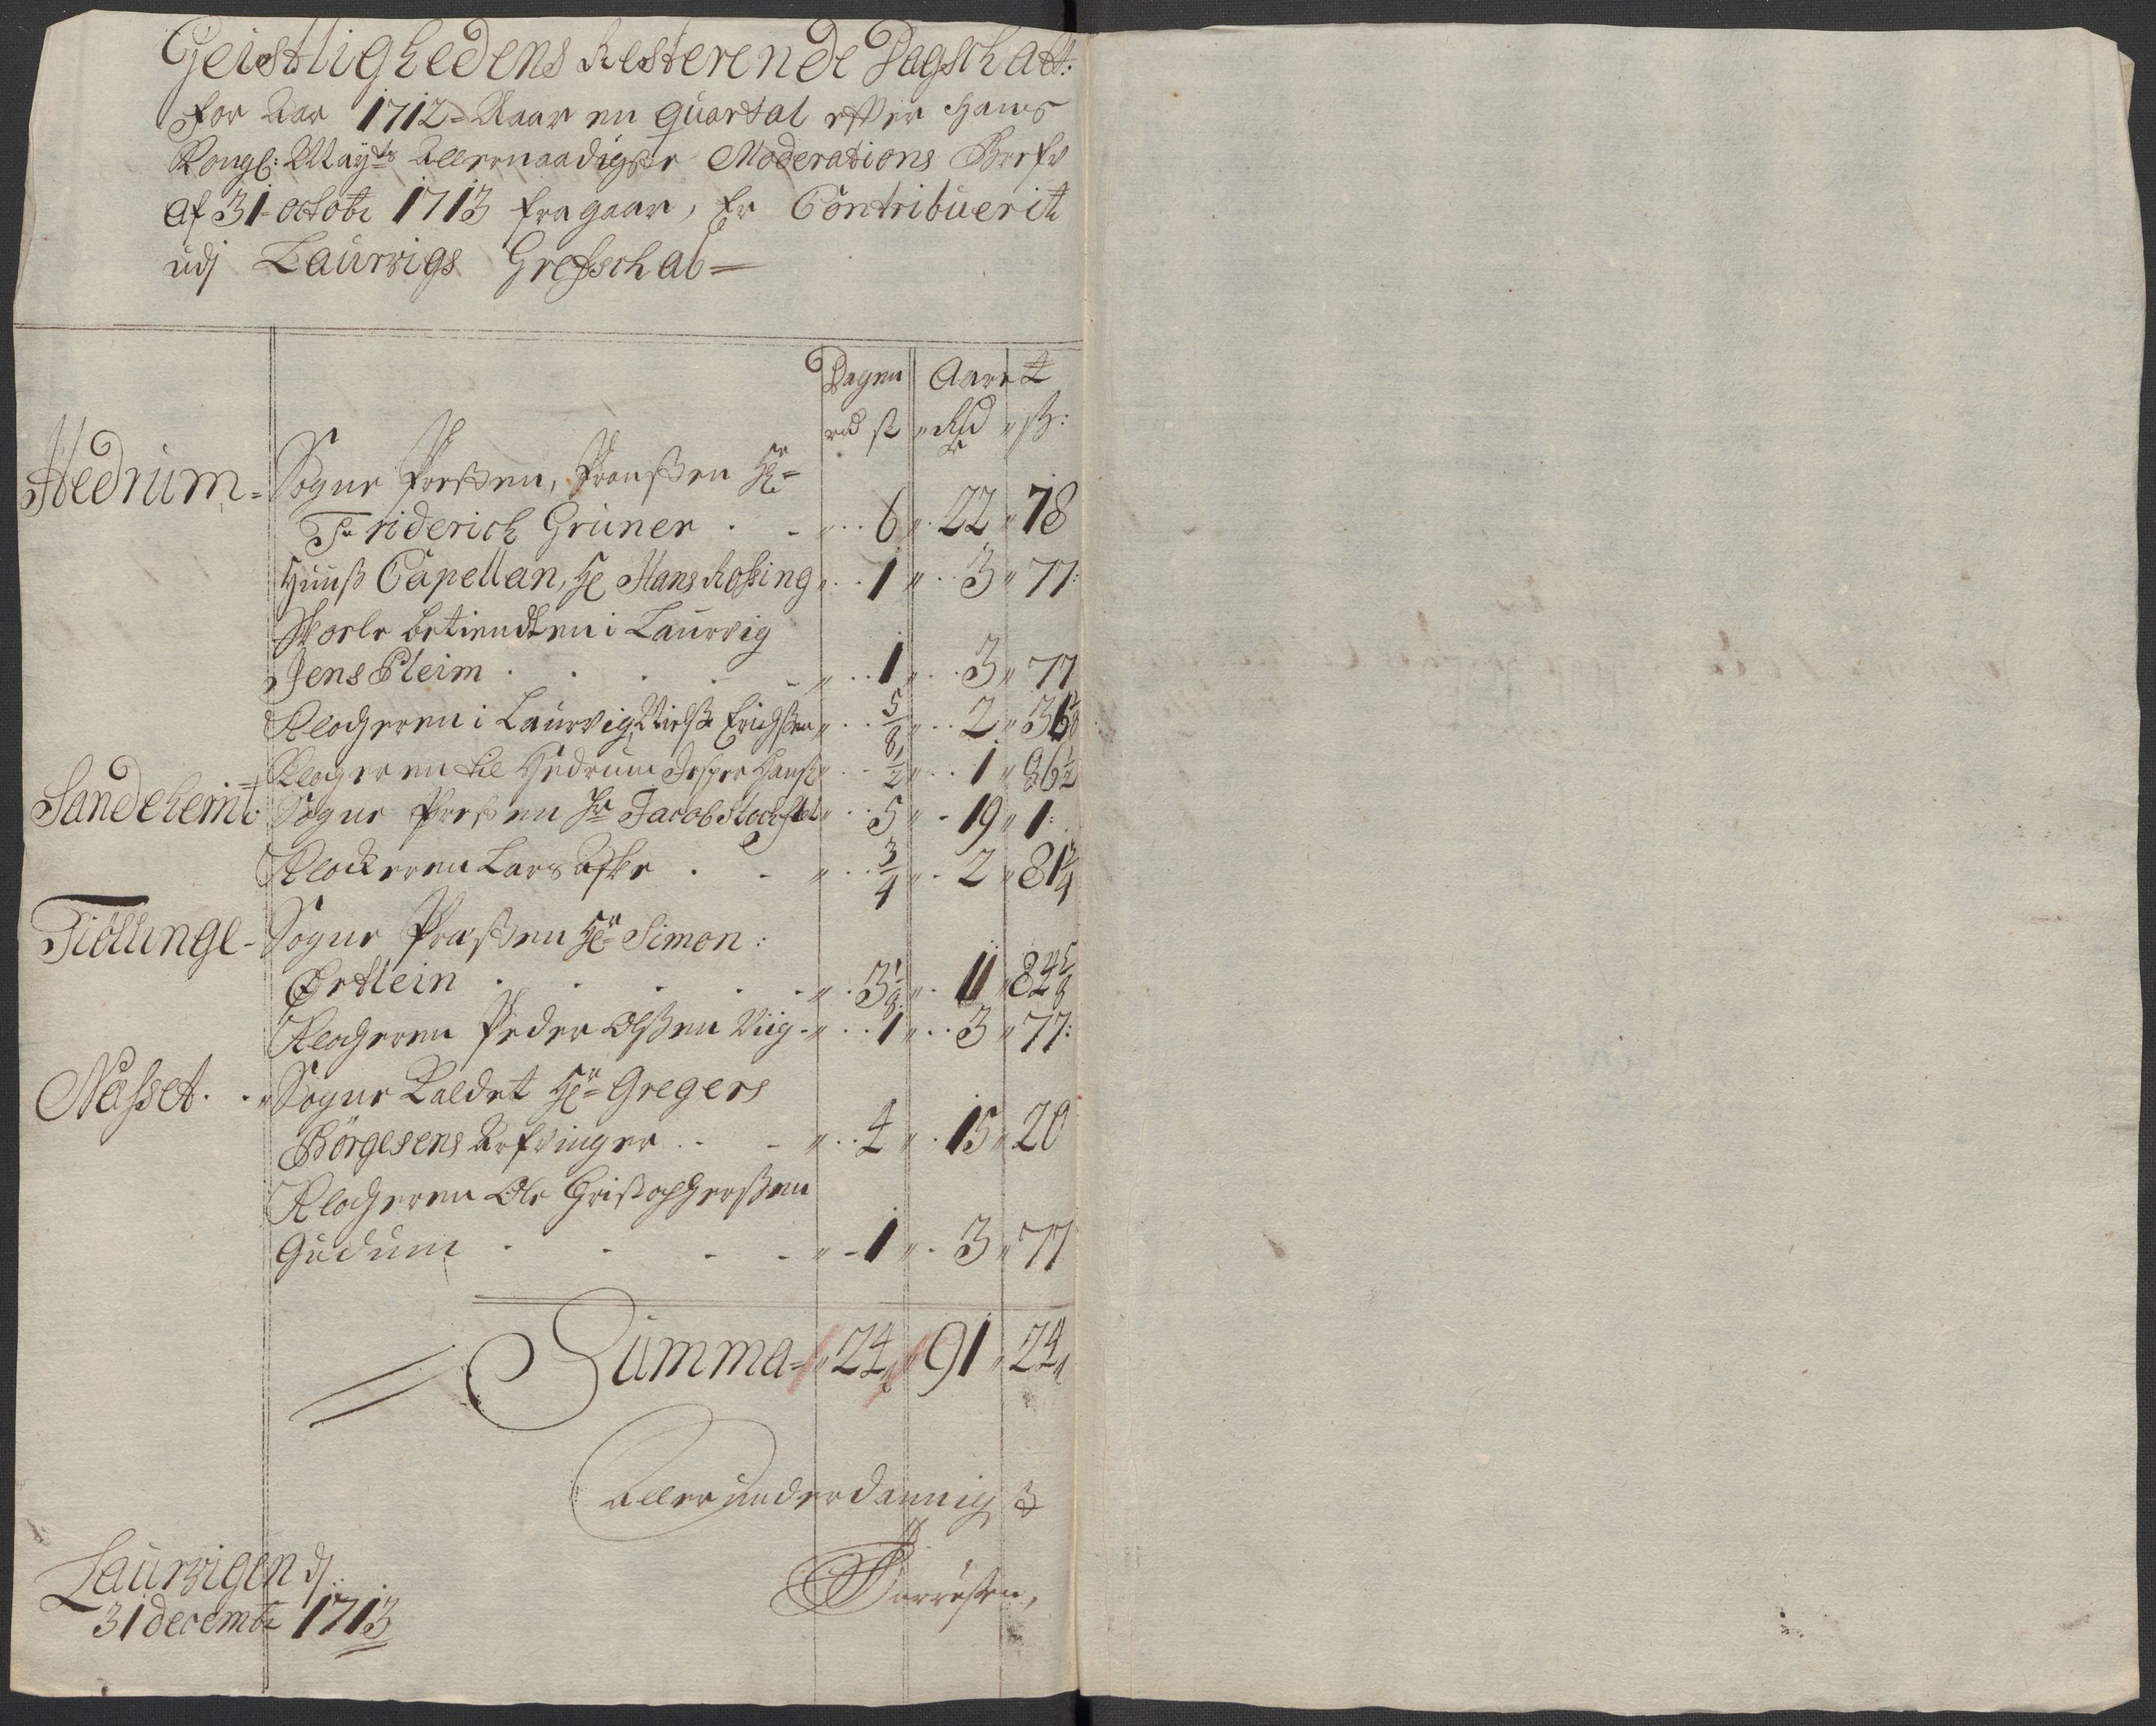 Geistlighedens Resterende Dagschatt:
for Aar 1712 = Naar en quartal efter Hans
Kongl: Mayts Allernaadigste Moderations Bref
af 31 octobr 1713 fragaar, Er Contribuerit
udj Laurvigs Grefschab =
Dagen Aaret
rd ß Rd ß:
Hedrum = Sogne Presten, Prousten Hr
Friderich Grüner 6 22 78
Huuß Capellan, Hr Hans Rossing 1 3 77
Skole betiendten i Laurvig
Jens Pleim 1 3 77
Klocheren i Laurvig, Nielß Erichßen 5/8 2 36 1/8
Klocheren til Hedrum Jesper Hanß 1/2 1 86 1/2
Sandeherrit Sogne Presten Hr Jacob Stochflet 5 19 1
Klockeren Lars Aske 3/4 2 81 3/4
Tiöllinge - Sogne Presten Hr Simon
Ertlein 3 1/8 11 84 5/8
Klocheren Peder Olßen Viig 1 3 77
Næsset Sogne Kaldet Hr Gregers
Börgesens Arfvinger 4 15 20
Klocheren Ole Cristopherßen
Gudum 1 3 77
Summa = 24 91 24
Allerunderdannigst
Laurvigen dj
31 decembr 1713